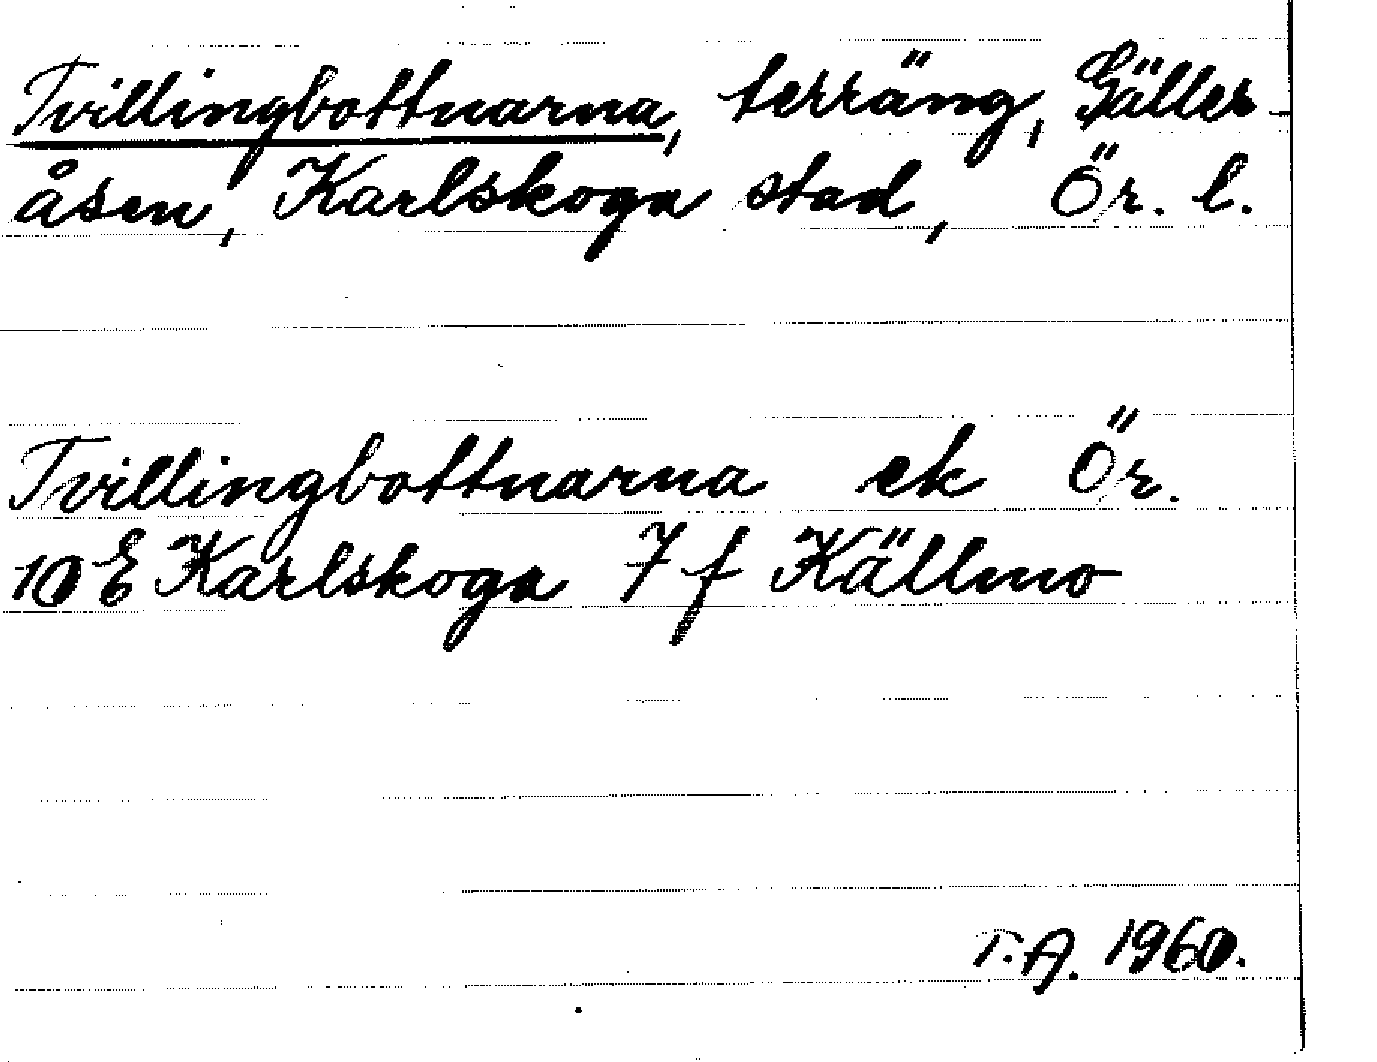 Tvillingbottnarna, terräng, Gäller-
åsen, Karlskoga stad, Ör. l.
Tvillingbottnarna ek Ör.
10 E Karlskoga 7 f Källmo
T.A. 1960.